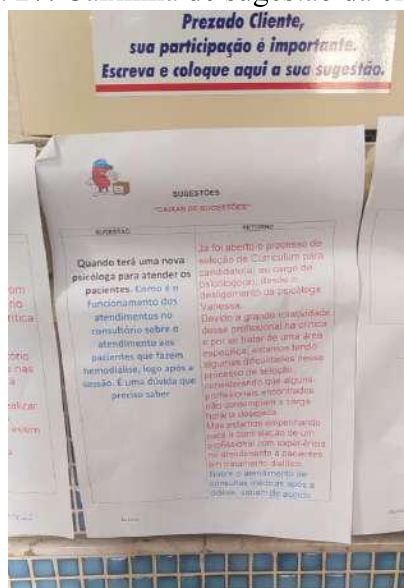 Prezado Cliente,
sua participação é importante.
Escreva e coloque aqui a sua sugestão.
SUGESTÕES
"CAIXAS DE SUGESTÕES"
SUGESTÃO
RETORNO
Quando terá uma nova
psicóloga para atender os
pacientes. Como é o
funcionamento dos
atendimentos no
consultório sobre o
atendimento aos
pacientes que fazem
hemodiálise, logo após a
sessão. É uma dúvida que
preciso saber
Já foi aberto o processo de
seleção de Curriculum para
candidatos(a) ao cargo de
psicólogo(a), desde o
desligamento da psicóloga
Vanessa.
Devido a grande rotatividade
desse profissional na clínica
e por se tratar de uma área
específica, estamos tendo
algumas dificuldades nesse
processo de seleção,
considerando que alguns
profissionais encontrados
não contemplam a carga
horária desejada.
Mas estamos empenhando
para a contratação de um
profissional com experiência
no atendimento a pacientes
em tratamento dialítico.
Sobre o atendimento de
consultas médicas após a